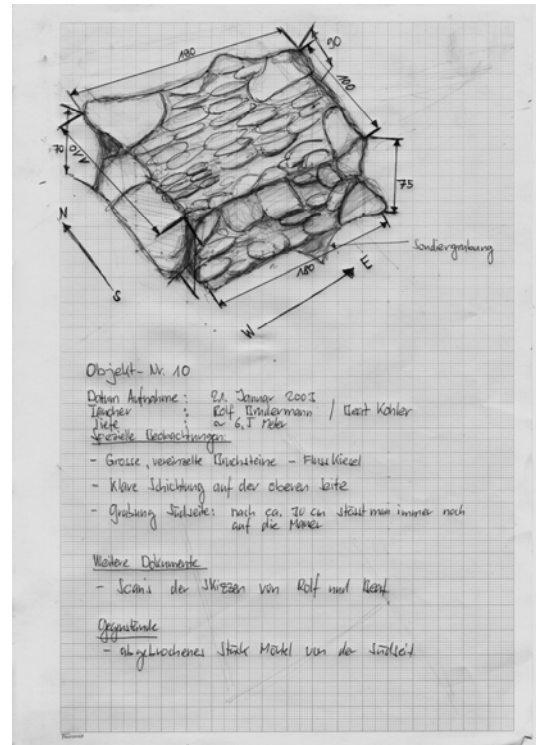 180
90
100
70
110
75
N
S
Sondiergrabung
180
E
W
Objekt-Nr. 10
Datum Aufnahme : 21. Januar 2003
Taucher : Rolf Brudermann / Beat Kohler
Tiefe : ~ 6,5 Meter
Spezielle Beobachtungen:
- Grosse, vereinzelte Bruchsteine - Flusskiesel
- Klare Schichtung auf der oberen Seite
- Grabung Südseite: nach ca. 30 cm stösst man immer noch
auf die Mauer
Weitere Dokumente
- Scan's der Skizzen von Rolf und Beat
Gegenstände
- abgebrochenes Stück Mörtel von der Südseit